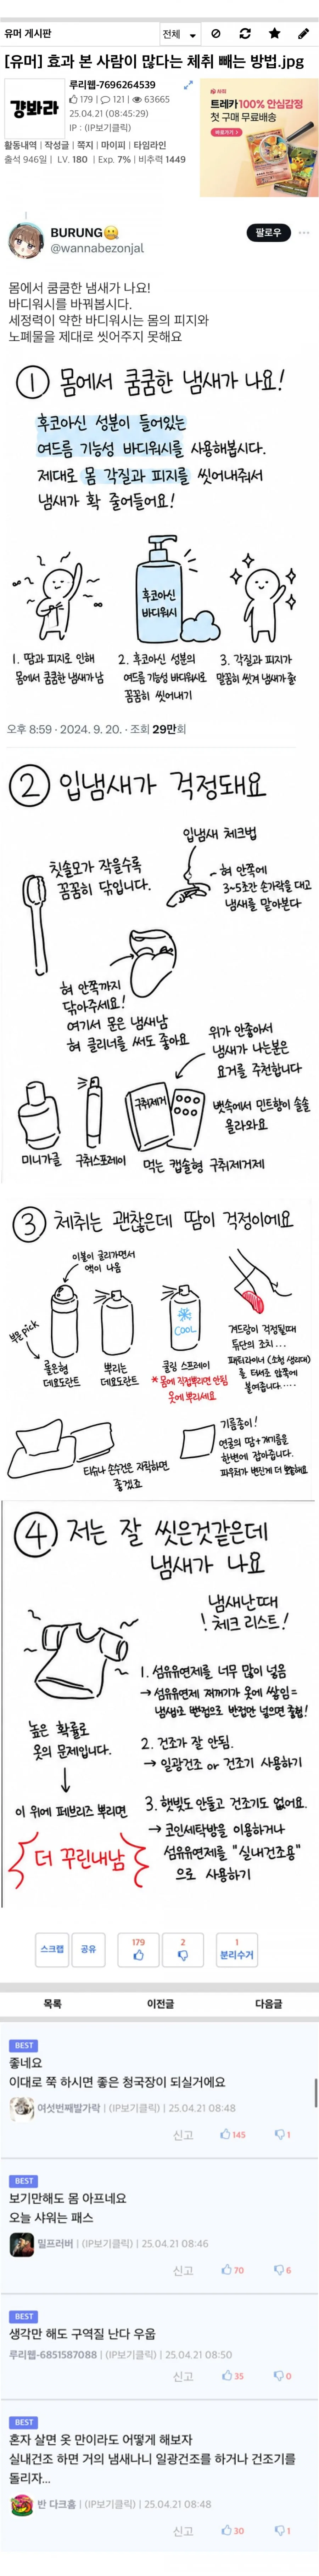 유머 게시판
전체
[유머] 효과 본 사람이 많다는 체취 빼는 방법.jpg
걍봐라
루리웹-7696264539
179 | 121 | 63665
25.04.21 (08:45:29)
IP : (IP보기클릭)
활동내역 | 작성글 | 쪽지 | 마이피 | 타임라인
출석 946일 | LV. 180 | Exp. 7% | 비추력 1449
트레카 100% 안심감정
첫 구매 무료배송
바로가기
BURUNG
@wannabezonjal
팔로우
몸에서 쿰쿰한 냄새가 나요!
바디워시를 바꿔봅시다.
세정력이 약한 바디워시는 몸의 피지와
노폐물을 제대로 씻어주지 못해요
① 몸에서 쿰쿰한 냄새가 나요!
후코아신 성분이 들어있는
여드름 기능성 바디워시를 사용해봅시다.
제대로 몸 각질과 피지를 씻어내줘서
냄새가 확 줄어들어요!
후코아신
바디워시
1. 땀과 피지로 인해
몸에서 쿰쿰한 냄새가 남
2. 후코아신 성분의
여드름 기능성 바디워시로
꼼꼼히 씻어내기
3. 각질과 피지가
말끔히 씻겨 냄새가 줄
오후 8:59 · 2024. 9. 20. · 조회 29만회
② 입냄새가 걱정돼요
입냄새 체크법
칫솔모가 작을수록
꼼꼼히 닦입니다.
혀 안쪽에
3~5초간 손가락을 대고
냄새를 맡아본다
혀 안쪽까지
닦아주세요!
여기서 묻은 냄새남
혀 클리너를 써도 좋아요
위가 안좋아서
냄새가 나는분은
요거를 추천합니다
구취제거
뱃속에서 민트향이 솔솔
올라와요
미니가글
구취스프레이
먹는 캡슐형 구취제거제
③ 체취는 괜찮은데 땀이 걱정이에요
이볼이 굴러가면서
액이 나옴
부른 pick
롤온형
데오도란트
뿌리는
데오도란트
COOL
쿨링 스프레이
* 몸에 직접뿌리면 안됨
옷에 뿌리세요
겨드랑이 걱정될때
최후의 조치...
팬티라이너 (소형 생리대)
를 티셔츠 안쪽에
붙여줍니다....
티슈나 손수건은 지참하면
좋겠죠
기름종이!
얼굴의 땀+개기름을
한번에 잡아줍니다.
파우더가 번진게 더 못해요
④ 저는 잘 씻은것같은데
냄새가 나요
냄새난다때
! 체크 리스트!
높은 확률로
옷의 문제입니다.
이 위에 페브리즈 뿌리면
더 꾸린내남
1. 섬유유연제를 너무 많이 넣음
→ 섬유유연제 찌꺼기가 옷에 쌓임=
냄새로 뺀걸으로 반절만 넣으면 충분!
2. 건조가 잘 안됨.
→ 일광건조 or 건조기 사용하기
3. 햇빛도 안들고 건조기도 없어요.
→ 코인세탁방을 이용하거나
섬유유연제를 "실내건조용"
으로 사용하기
스크랩
공유
179
2
1
분리수거
목록
이전글
다음글
BEST
좋네요
이대로 쭉 하시면 좋은 청국장이 되실거에요
여섯번째발가락 | (IP보기클릭) | 25.04.21 08:48
신고 145 1
BEST
보기만해도 몸 아프네요
오늘 샤워는 패스
밀프러버 | (IP보기클릭) | 25.04.21 08:46
신고 70 6
BEST
생각만 해도 구역질 난다 우웁
루리웹-6851587088 | (IP보기클릭) | 25.04.21 08:50
신고 35 0
BEST
혼자 살면 옷 만이라도 어떻게 해보자
실내건조 하면 거의 냄새나니 일광건조를 하거나 건조기를
돌리자...
반 다크홈 | (IP보기클릭) | 25.04.21 08:48
신고 30 1